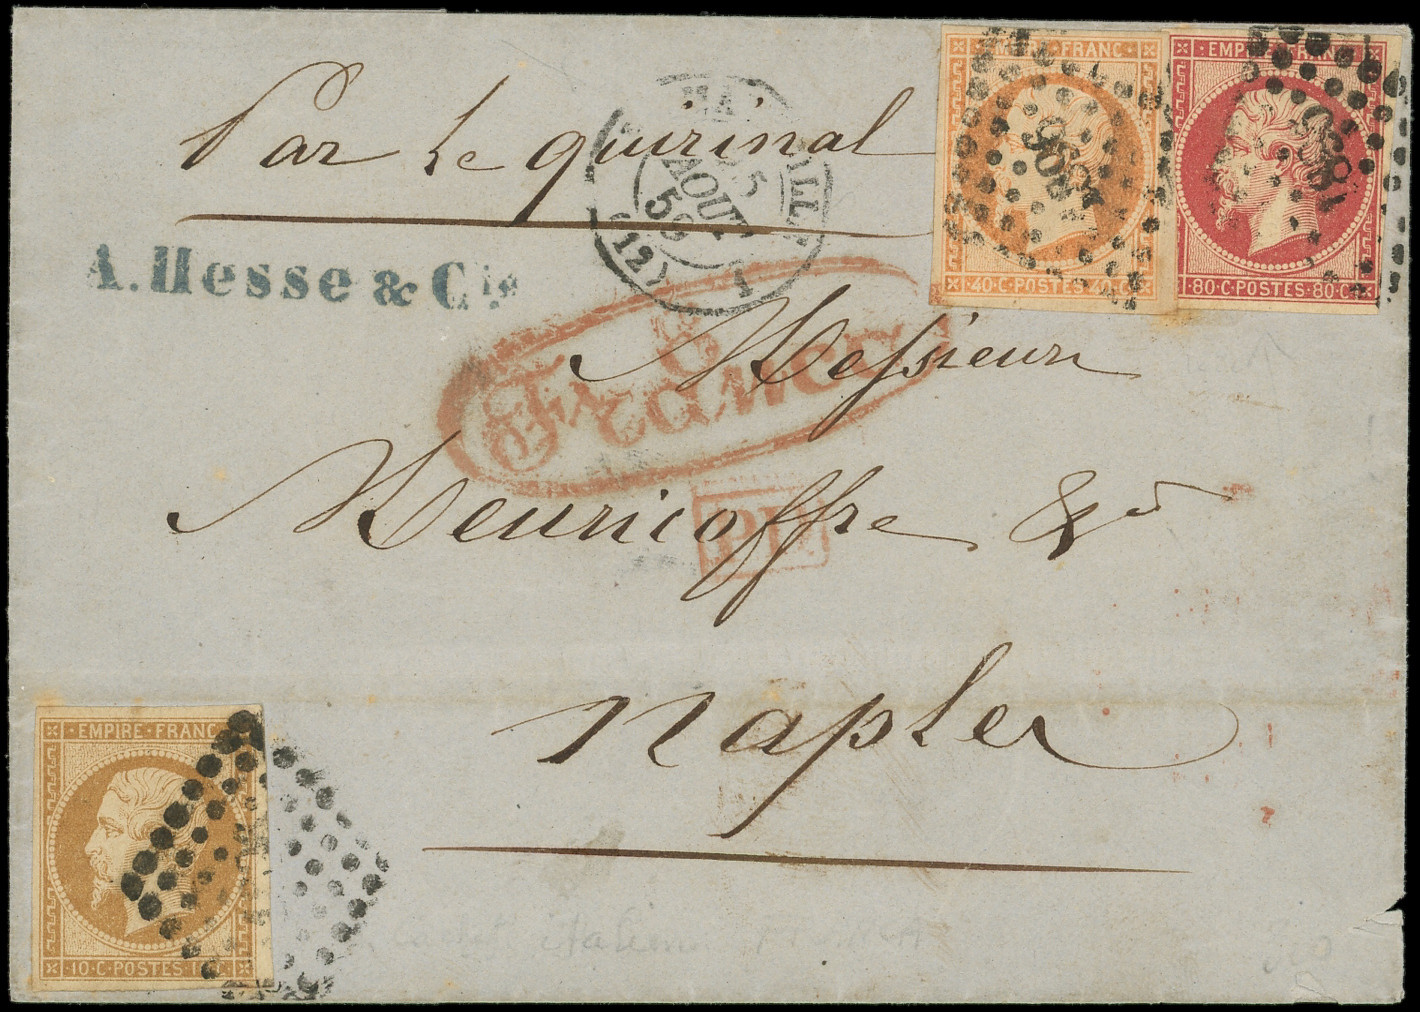 EMPIRE · FRANC
EMPIRE · FRANC
Par le quirinal
25
AOUT
59
(12)
1896
1896
A. Hesse & Cie
40 · C · POSTES · 40 · C
80 · C · POSTES · 80 · C
Messieurs
Franca
Meuricoffre & Cie
PD
Naples
EMPIRE · FRANC
10 · C · POSTES · 10 · C